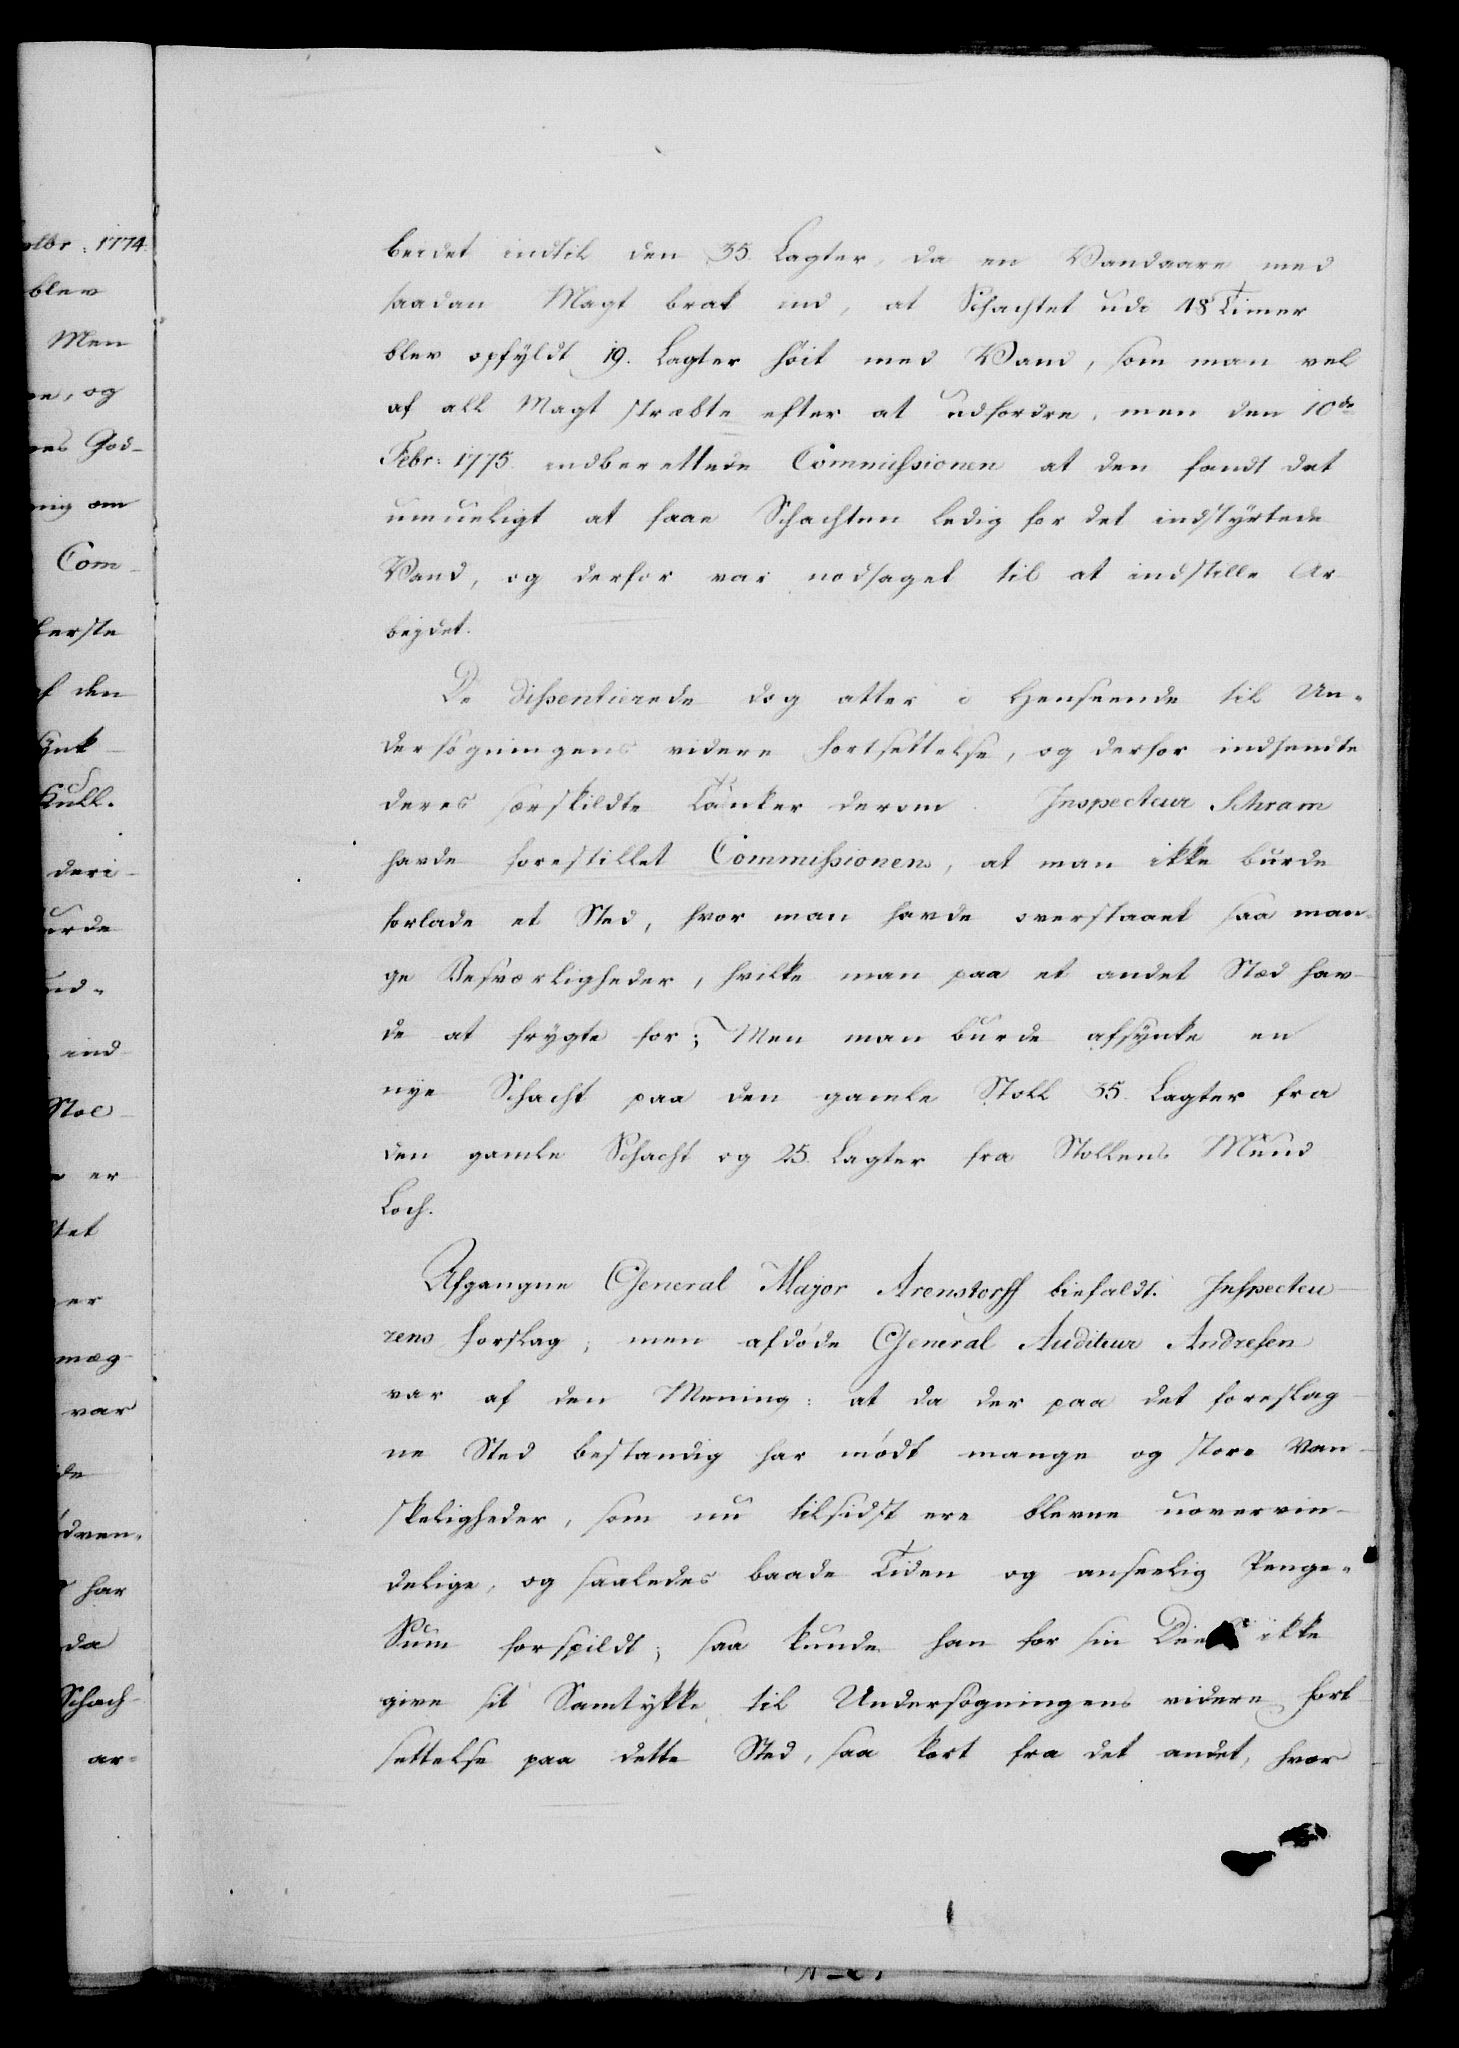 olbr: 1774.
blev
Men
e, og
es God-
nig om
Com-
ferste
af den
synk-
Kull.
deri-
urde
ud-
ind-
Stol-
er
tet
er
mæg-
var
de
ödven-
har
da
Schach-
ar-
beidet indtil den 35 Lagter, da en Vandaare med
saadan Magt brak ind, at Schachtet udi 18 Timer
blev opfyldt 19. Lagter höit med Vand, som man vel
af all Magt stræbte efter at udfordre, men den 10de
Febr: 1775. indberettede Commissionen at den fandt det
umueligt at faae Schachten ledig for det indstyrtede
Vand, og derfor var nodsaget til at indstille Ar-
beydet.
De dissentierede dog atter i Henseende til Un-
dersögningens videre fortsettelse, og derfor indsendte
deres særskildte Tanker derom. Inspecteur Schram
havde forestillet Commissionen, at man ikke burde
forlade et Sted, hvor man havde overstaaet saa man-
ge Besværligheder, hvilke man paa et andet Stæd hav-
de at frygte for; Men man burde afsynke en
nye Schacht paa den gamle Stoll 35. Lagter fra
den gamle Schacht og 25. Lagter fra Stollens Mund
Loch.
Afgangne General Major Arenstorff biefaldt Inspecteu-
rens forslag; men afdöde General Auditeur Andresen
var af den Mening: at da der paa det foreslag-
ne Sted bestandig har mödt mange og store Van-
skeligheder, som nu tilsidst ere blevne uovervin-
delige, og saaledes baade Tiden og anseelig Penge-
Sum forspildt; saa kunde han for sin Deel ikke
give sit Samtykke til Undersögningens videre fort-
settelse paa dette Sted, saa kort fra det andet, hvor